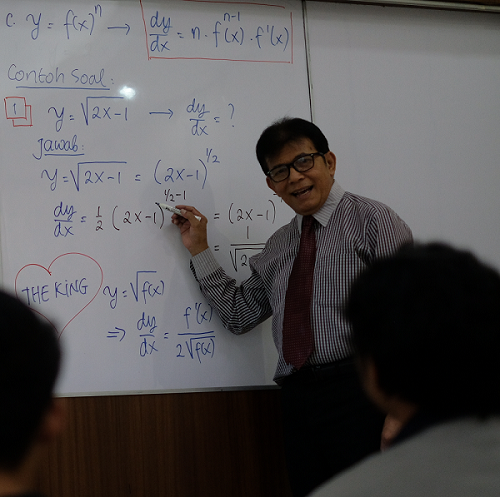 c. y = f(x)ⁿ → dy/dx = n · f(x)ⁿ⁻¹ · f'(x)
Contoh Soal:
1 y = √(2x-1) → dy/dx = ?
Jawab:
y = √(2x-1) = (2x-1)^1/2
dy/dx = 1/2 (2x-1)^1/2-1 = (2x-1)
= 1/√(2
THE KING
y = √f(x)
⇒ dy/dx = f'(x)/2√f(x)